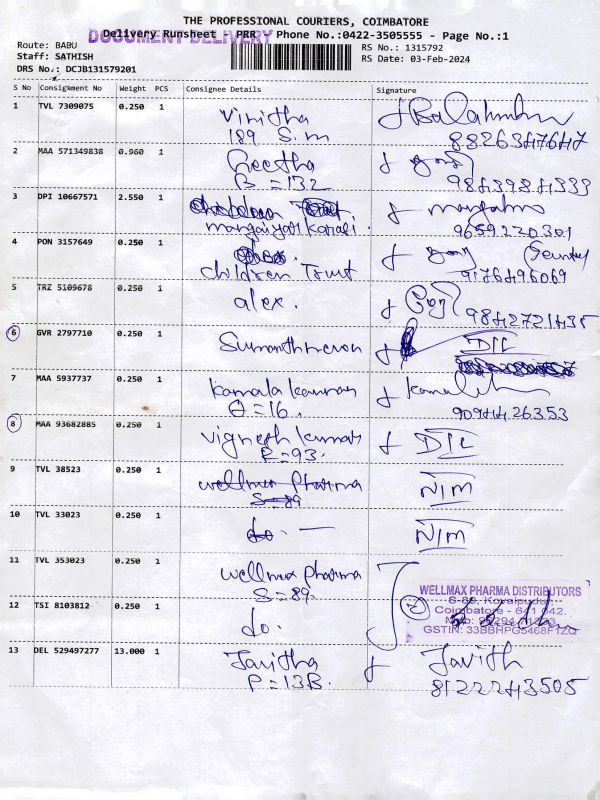 THE PROFESSIONAL COURIERS, COIMBATORE
DOCUMENT DELIVERY
Delivery Runsheet - PRR Phone No.:0422-3505555 - Page No.:1
Route: BABU RS No.: 1315792
Staff: SATHISH RS Date: 03-Feb-2024
DRS No.: DCJB131579201
S No Consignment No Weight PCS Consignee Details Signature
1 TVL 7309075 0.250 1 Vinitha
189 S.m 8826347647
2 MAA 571349838 0.960 1 Geetha
B=132 9843984333
3 DPI 10667571 2.550 1
9659220301
4 PON 3157649 0.250 1
children Trust 9176496069
5 TRZ 5109678 0.250 1 alex. 9842721435
6 GVR 2797710 0.250 1 DIL
7 MAA 5937737 0.250 1
=16. 9094426353
8 MAA 93682885 0.250 1 Vignesh kumar DIL
R=93.
9 TVL 38523 0.250 1 wellmax pharma NIM
S=89
10 TVL 33023 0.250 1 do. NIM
11 TVL 353023 0.250 1 wellmax pharma
S=89.
WELLMAX PHARMA DISTRIBUTORS
12 TSI 8103812 0.250 1 do. 2
S-89, Kovaipudur,
Coimbatore - 641 042.
GSTIN: 33BBHPG5468F1ZQ
13 DEL 529497277 13.000 1 Javitha Javith
P=13B. 8122243505